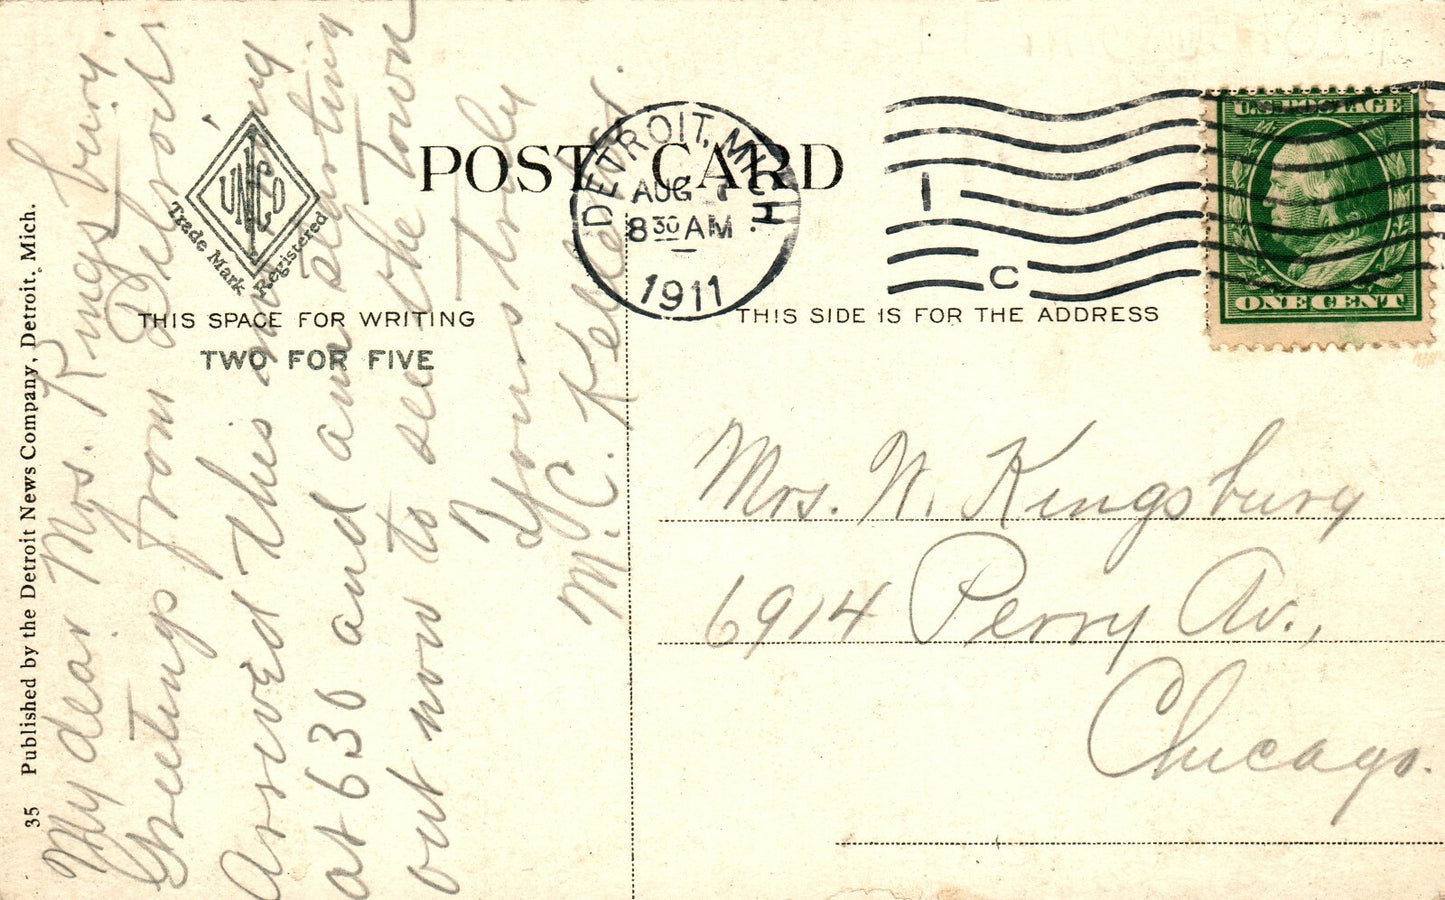 35 Published by the Detroit News Company, Detroit, Mich.
POST CARD
Trade Mark Registered
THIS SPACE FOR WRITING
TWO FOR FIVE
My dear Mrs. Kingsbury.
Greetings from Detroit
Arrived this morning
at 630 and am starting
out now to see the town
Yours truly
M. C. Kellogg.
DETROIT, MICH.
AUG 7
8 30 AM
1911
1
C
U.S. POSTAGE
ONE CENT
THIS SIDE IS FOR THE ADDRESS
Mrs. W. Kingsbury
6914 Perry Av.,
Chicago.